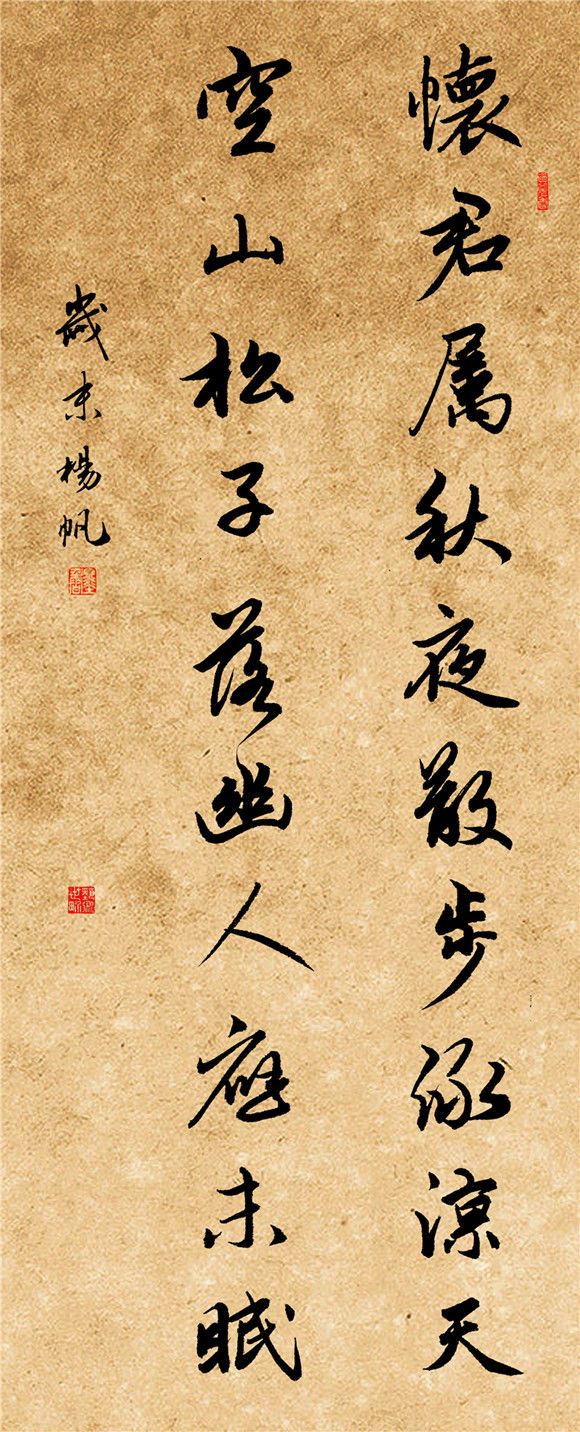 懷君属秋夜散步詠涼天
空山松子落幽人應未眠
歲末楊帆